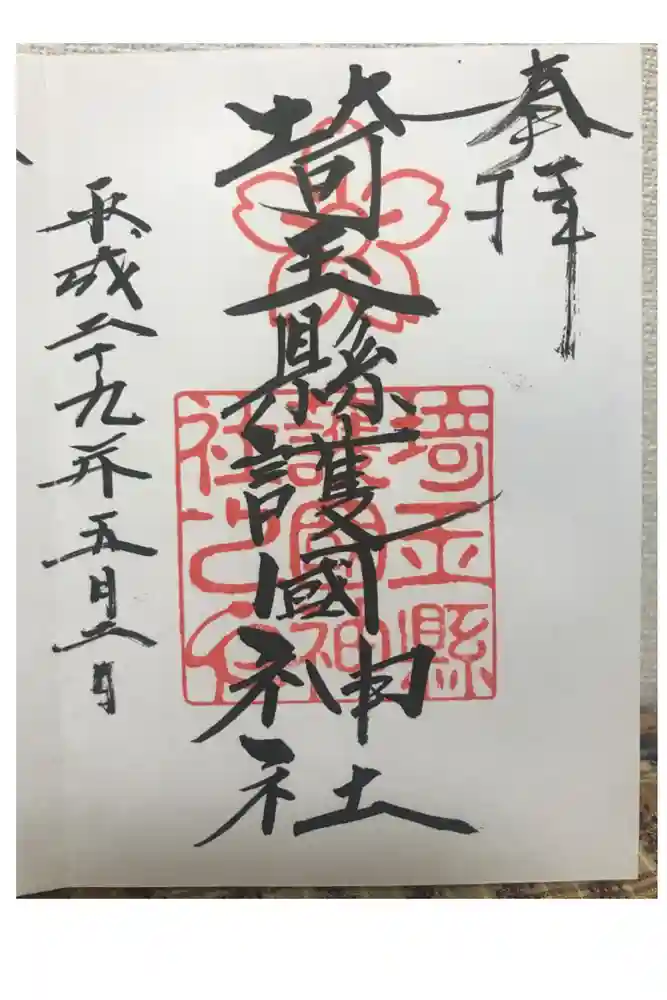 奉拝
埼玉縣護國神社
平成二十九年五月二日
埼玉縣
護國神
社之印